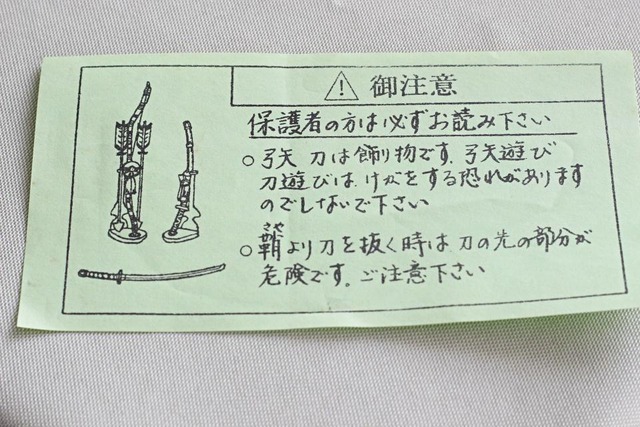 御注意
保護者の方は必ずお読み下さい
○弓矢 刀は飾り物です. 弓矢遊び
刀遊びは、けがをする恐れがあります
のでしないで下さい
さや
○鞘より刀を抜く時は刀の先の部分が
危険です。ご注意下さい